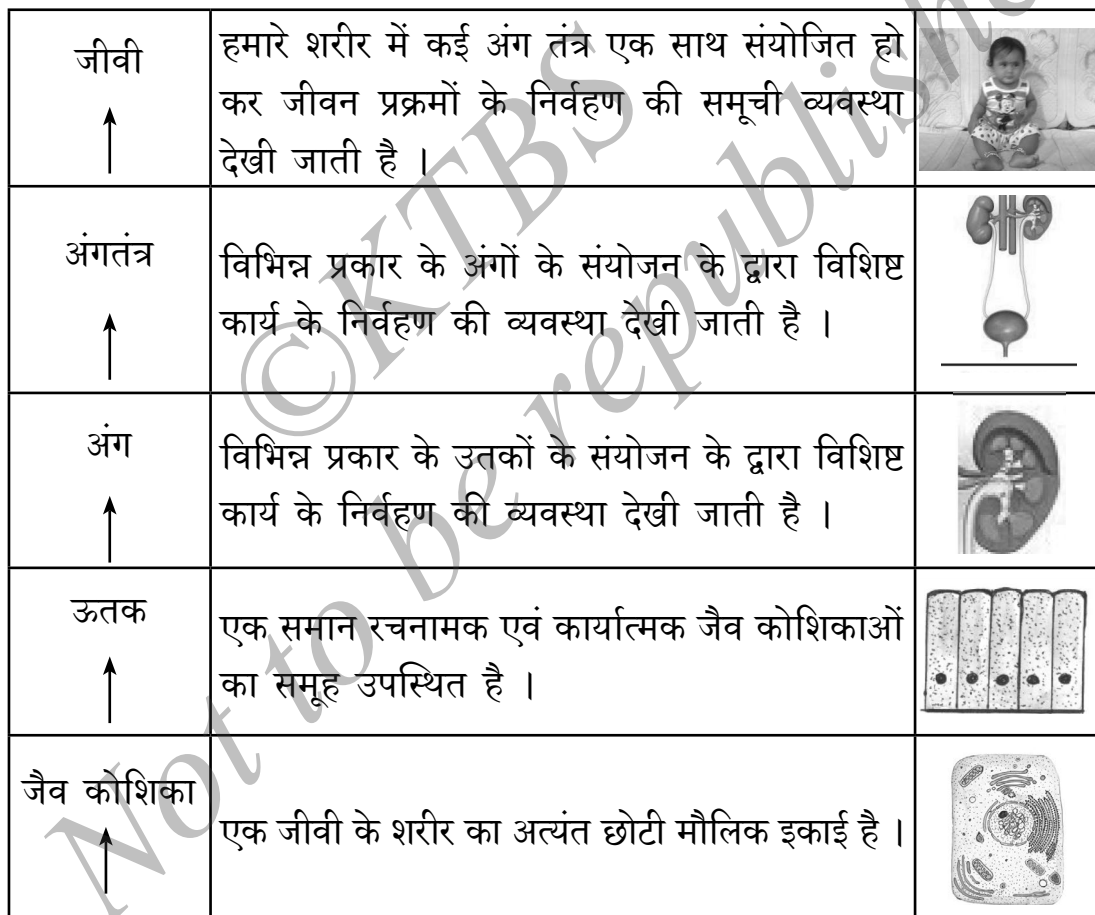 जीवी
हमारे शरीर में कई अंग तंत्र एक साथ संयोजित हो
कर जीवन प्रक्रमों के निर्वहण की समूची व्यवस्था
देखी जाती है ।
अंगतंत्र
विभिन्न प्रकार के अंगों के संयोजन के द्वारा विशिष्ट
कार्य के निर्वहण की व्यवस्था देखी जाती है ।
अंग
विभिन्न प्रकार के उतकों के संयोजन के द्वारा विशिष्ट
कार्य के निर्वहण की व्यवस्था देखी जाती है ।
ऊतक
एक समान रचनामक एवं कार्यात्मक जैव कोशिकाओं
का समूह उपस्थित है ।
जैव कोशिका
एक जीवी के शरीर का अत्यंत छोटी मौलिक इकाई है ।
©KTBS
Not to be republishe